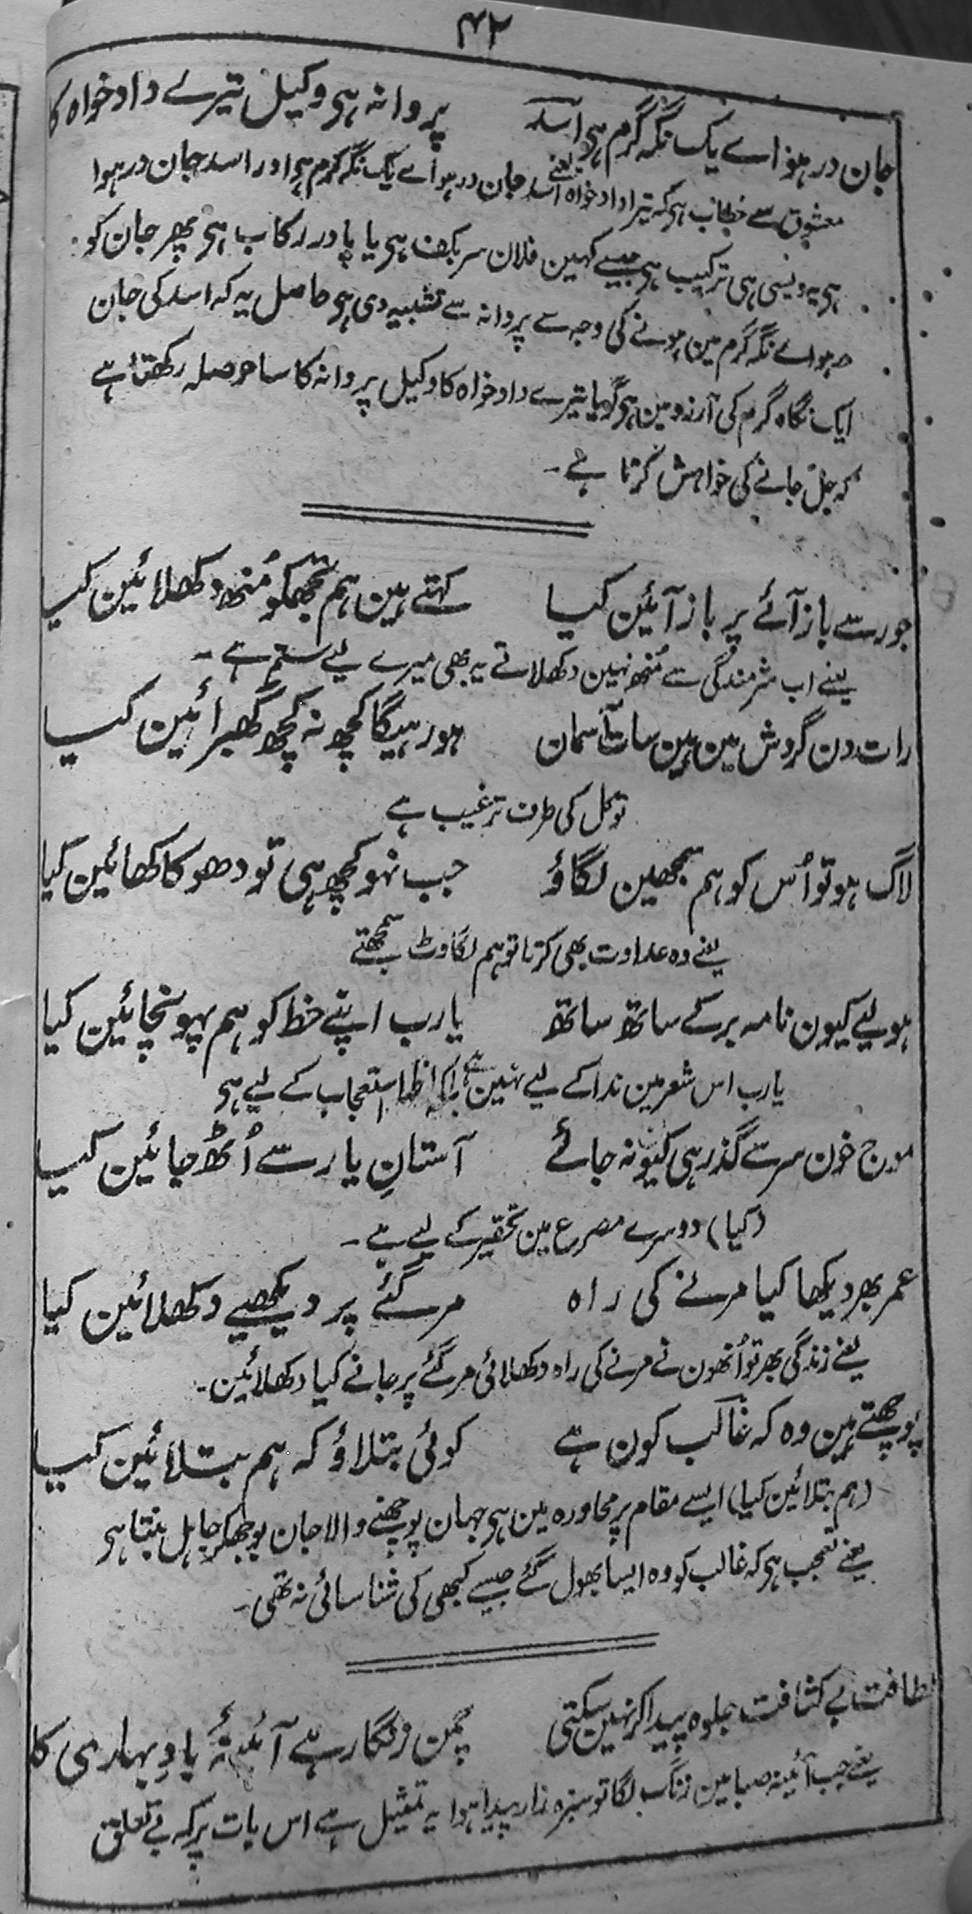 ۴۲
جان در ہواے یک نگہ گرم ہی اسدؔ پروانہ ہی وکیل تیرے دادخواہ کا
معشوق سے خطاب ہی کہ تیرا دادخواہ یعنے اسد جان در ہواے یک نگہ گرم ہی اور اسد جان در ہوا
ہی یہ ویسی ہی ترکیب ہی جیسے کہین فلان سربکف ہی یا پا در رکاب ہی پھر جان کو
ہواے نگہ گرم مین ہونے کی وجہ سے پروانہ سے تشبیہ دی ہی حاصل یہ کہ اسد کی جان
ایک نگاہ گرم کی آرزو مین ہی گویا تیرے دادخواہ کا وکیل پروانہ کا سا حوصلہ رکھتا ہے
کہ جل جانے کی خواہش کرتا ہے۔
جور سے باز آئے پر باز آئین کیا کہتے ہین ہم تجھکو مُنھ دکھلائین کیا
یعنے اب شرمندگی سے مُنھ نہین دکھلاتے یہ بھی میرے لیے ستم ہے۔
رات دن گردش مین ہین سات آسمان ہو رہیگا کچھ نہ کچھ گھبرائین کیا
توکل کی طرف ترغیب ہے
لاگ ہو تو اُس کو ہم سمجھین لگاؤ جب نہو کچھ ہی تو دھوکا کھائین کیا
یعنے وہ عداوت بھی کرتا تو ہم لگاوٹ سمجھتے
ہولیے کیون نامہ بر کے ساتھ ساتھ یارب اپنے خط کو ہم پہونچائین کیا
یارب اس شعر مین ندا کے لیے نہین ہے بلکہ اظہار استعجاب کے لیے ہی
موج خون سر سے گذر ہی کیونہ جائے آستانِ یار سے اُٹھ جائین کیا
(کیا) دوسرے مصرع مین تحقیر کے لیے ہے۔
عمر بھر دیکھا کیا مرنے کی راہ مرگئے پر دیکھیے دکھلائین کیا
یعنے زندگی بھر تو اُنھون نے مرنے کی راہ دکھلائی مرگئے پر جانے کیا دکھلائین۔
پوچھتے ہین وہ کہ غالب کون ہے کوئی بتلاؤ کہ ہم بتلائین کیا
(ہم بتلائین کیا) ایسے مقام پر محاورہ مین ہی جہان پوچھنے والا جان بوجھکر جاہل بنتا ہی
یعنے تعجب ہی کہ غالب کو وہ ایسا بھول گئے جیسے کبھی کی شناسائی نہ تھی۔
لطافت بے کثافت جلوہ پیدا کر نہین سکتی چمن زنگار ہے آئینۂ بادِ بہاری کا
یعنے جب آئینہ صبا مین زنگ لگا تو سبزہ زار پیدا ہوا یہ تمثیل ہے اس بات پر کہ بے تعلق